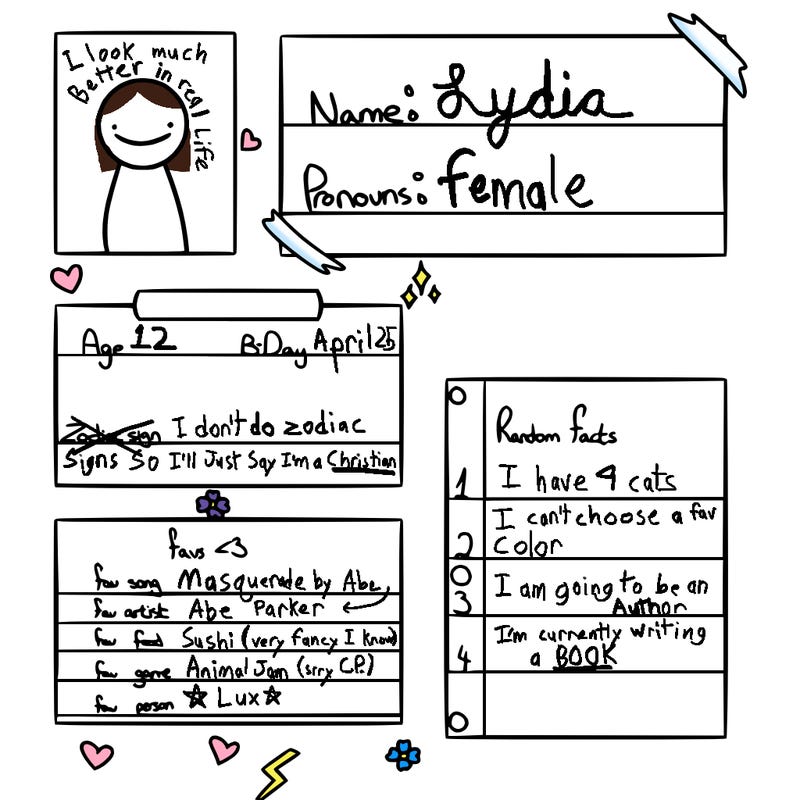 I look much
Better in real Life
Name: Lydia
Pronouns: female
Age 12 B-Day April 25
Zodiac sign I don't do zodiac
Signs So I'll Just Say I'm a Christian
favs <3
fav song Masquerade by Abe
fav artist Abe Parker
fav food Sushi (very fancy I know)
fav game Animal Jam (srry C.P.)
fav person ☆ Lux ☆
Random facts
1 I have 4 cats
I can't choose a fav
2 Color
3 I am going to be an
Author
I'm currently writing
4 a BOOK